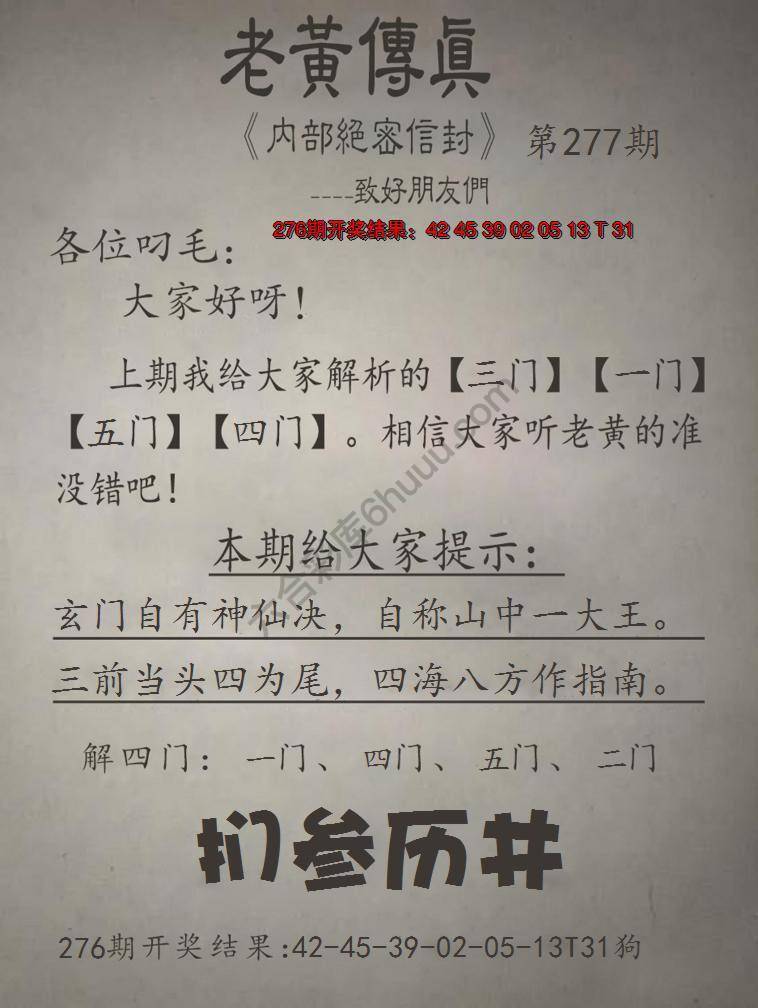 老黃傳眞
《内部絕密信封》 第277期
----致好朋友們
276期开奖结果：42 45 39 02 05 13 T 31
各位叼毛：
大家好呀！
上期我给大家解析的【三门】【一门】
【五门】【四门】。相信大家听老黄的准
没错吧！
本期给大家提示：
玄门自有神仙决，自称山中一大王。
三前当头四为尾，四海八方作指南。
解四门：一门、四门、五门、二门
扪参历井
276期开奖结果:42-45-39-02-05-13T31狗
六合彩库6huuu.com